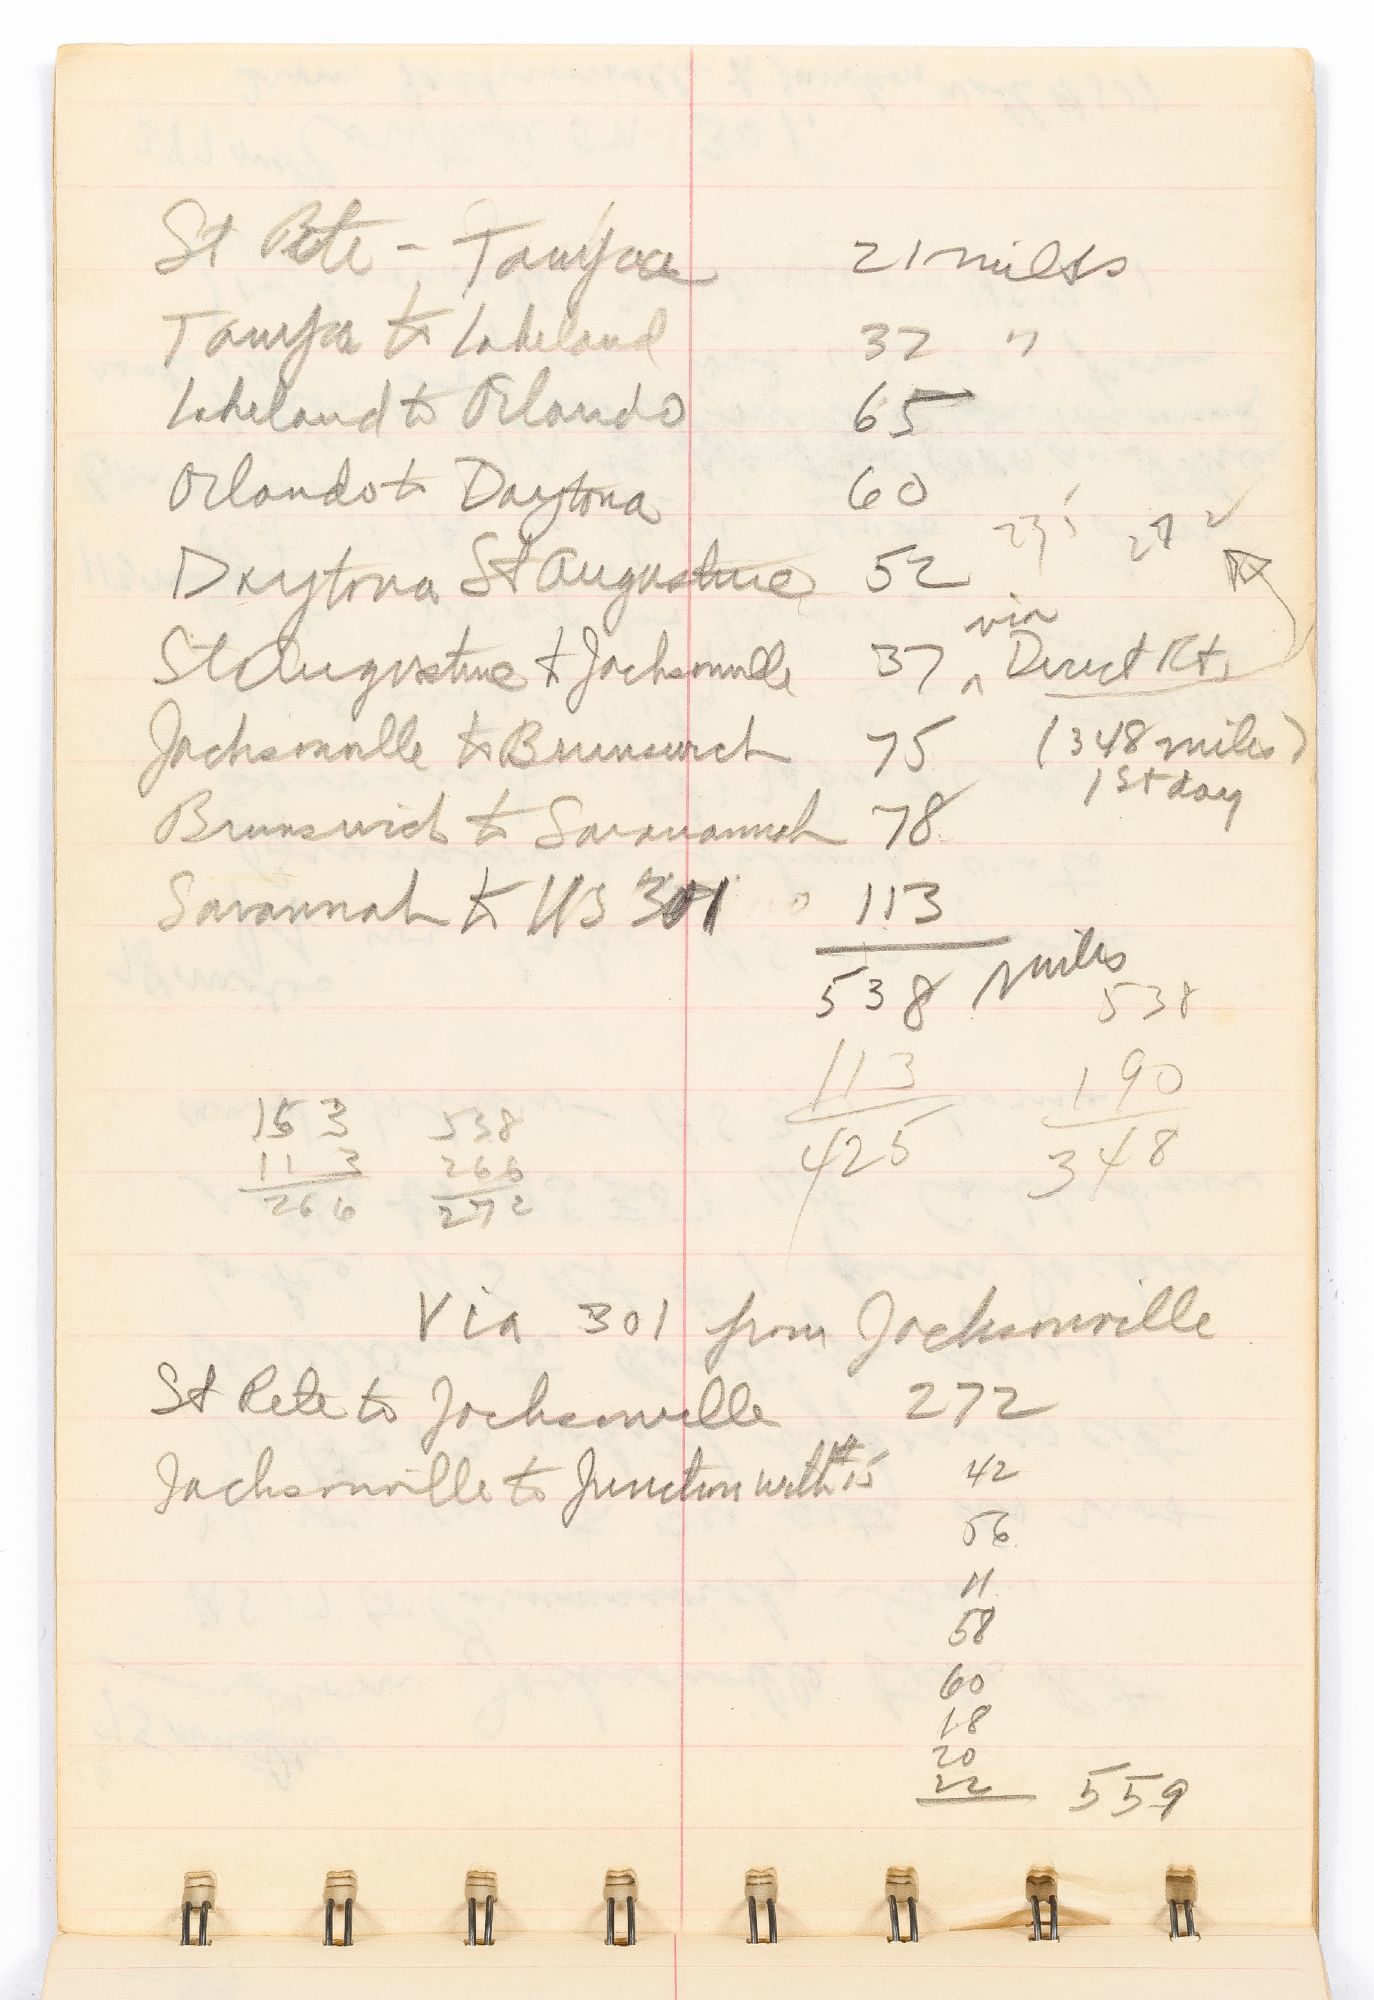 St Pete - Tampa 21 miles
Tampa to Lakeland 32 "
Lakeland to Orlando 65
Orlando to Daytona 60
27 2
Daytona St Augustine 52
via
St Augustine t Jacksonville 37 ^ Direct Rt.
Jacksonville to Brunswick 75 (348 miles)
1st day
Brunswick to Savavannah 78
Savannah to US 301 113
538 miles
538
113 190
425 348
153 538
113 266
266 272
Via 301 from Jacksonville
St Pete to Jacksonville 272
Jacksonville to Junction with #15 42
56
11
58
60
18
20
22 559